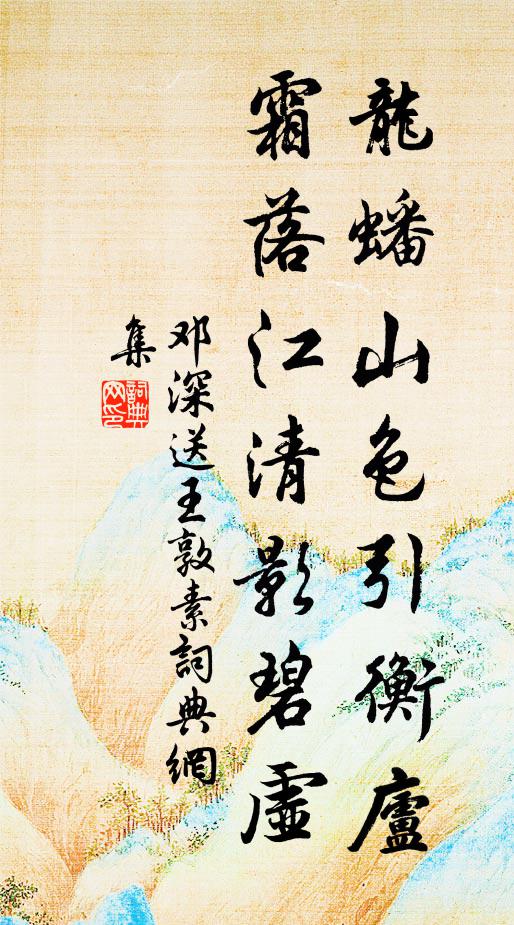 龍蟠山色引衡廬
霜落江清影碧虛
邓深送王敦素詞典網
集
詞典網印